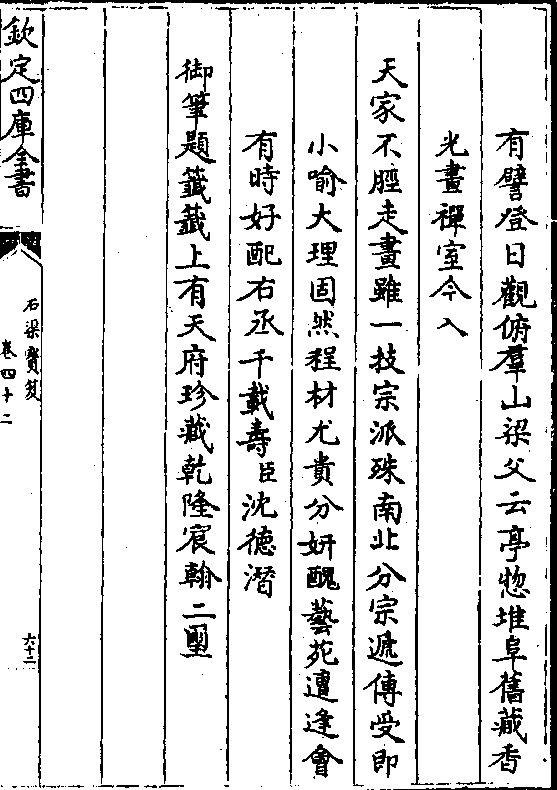 有譬登日觀俯羣山梁父云亭惣堆阜舊藏香
光畫禪室今入
天家不脛走畫雖一技宗派殊南北分宗遞傳受即
小喻大理固然程材尤貴分妍醜藝苑遭逢會
有時好配右丞千載壽臣沈德潛
御筆題籤籤上有天府珍藏乾隆宸翰二璽
欽定四庫全書
石渠寶笈
卷四十二
六十二